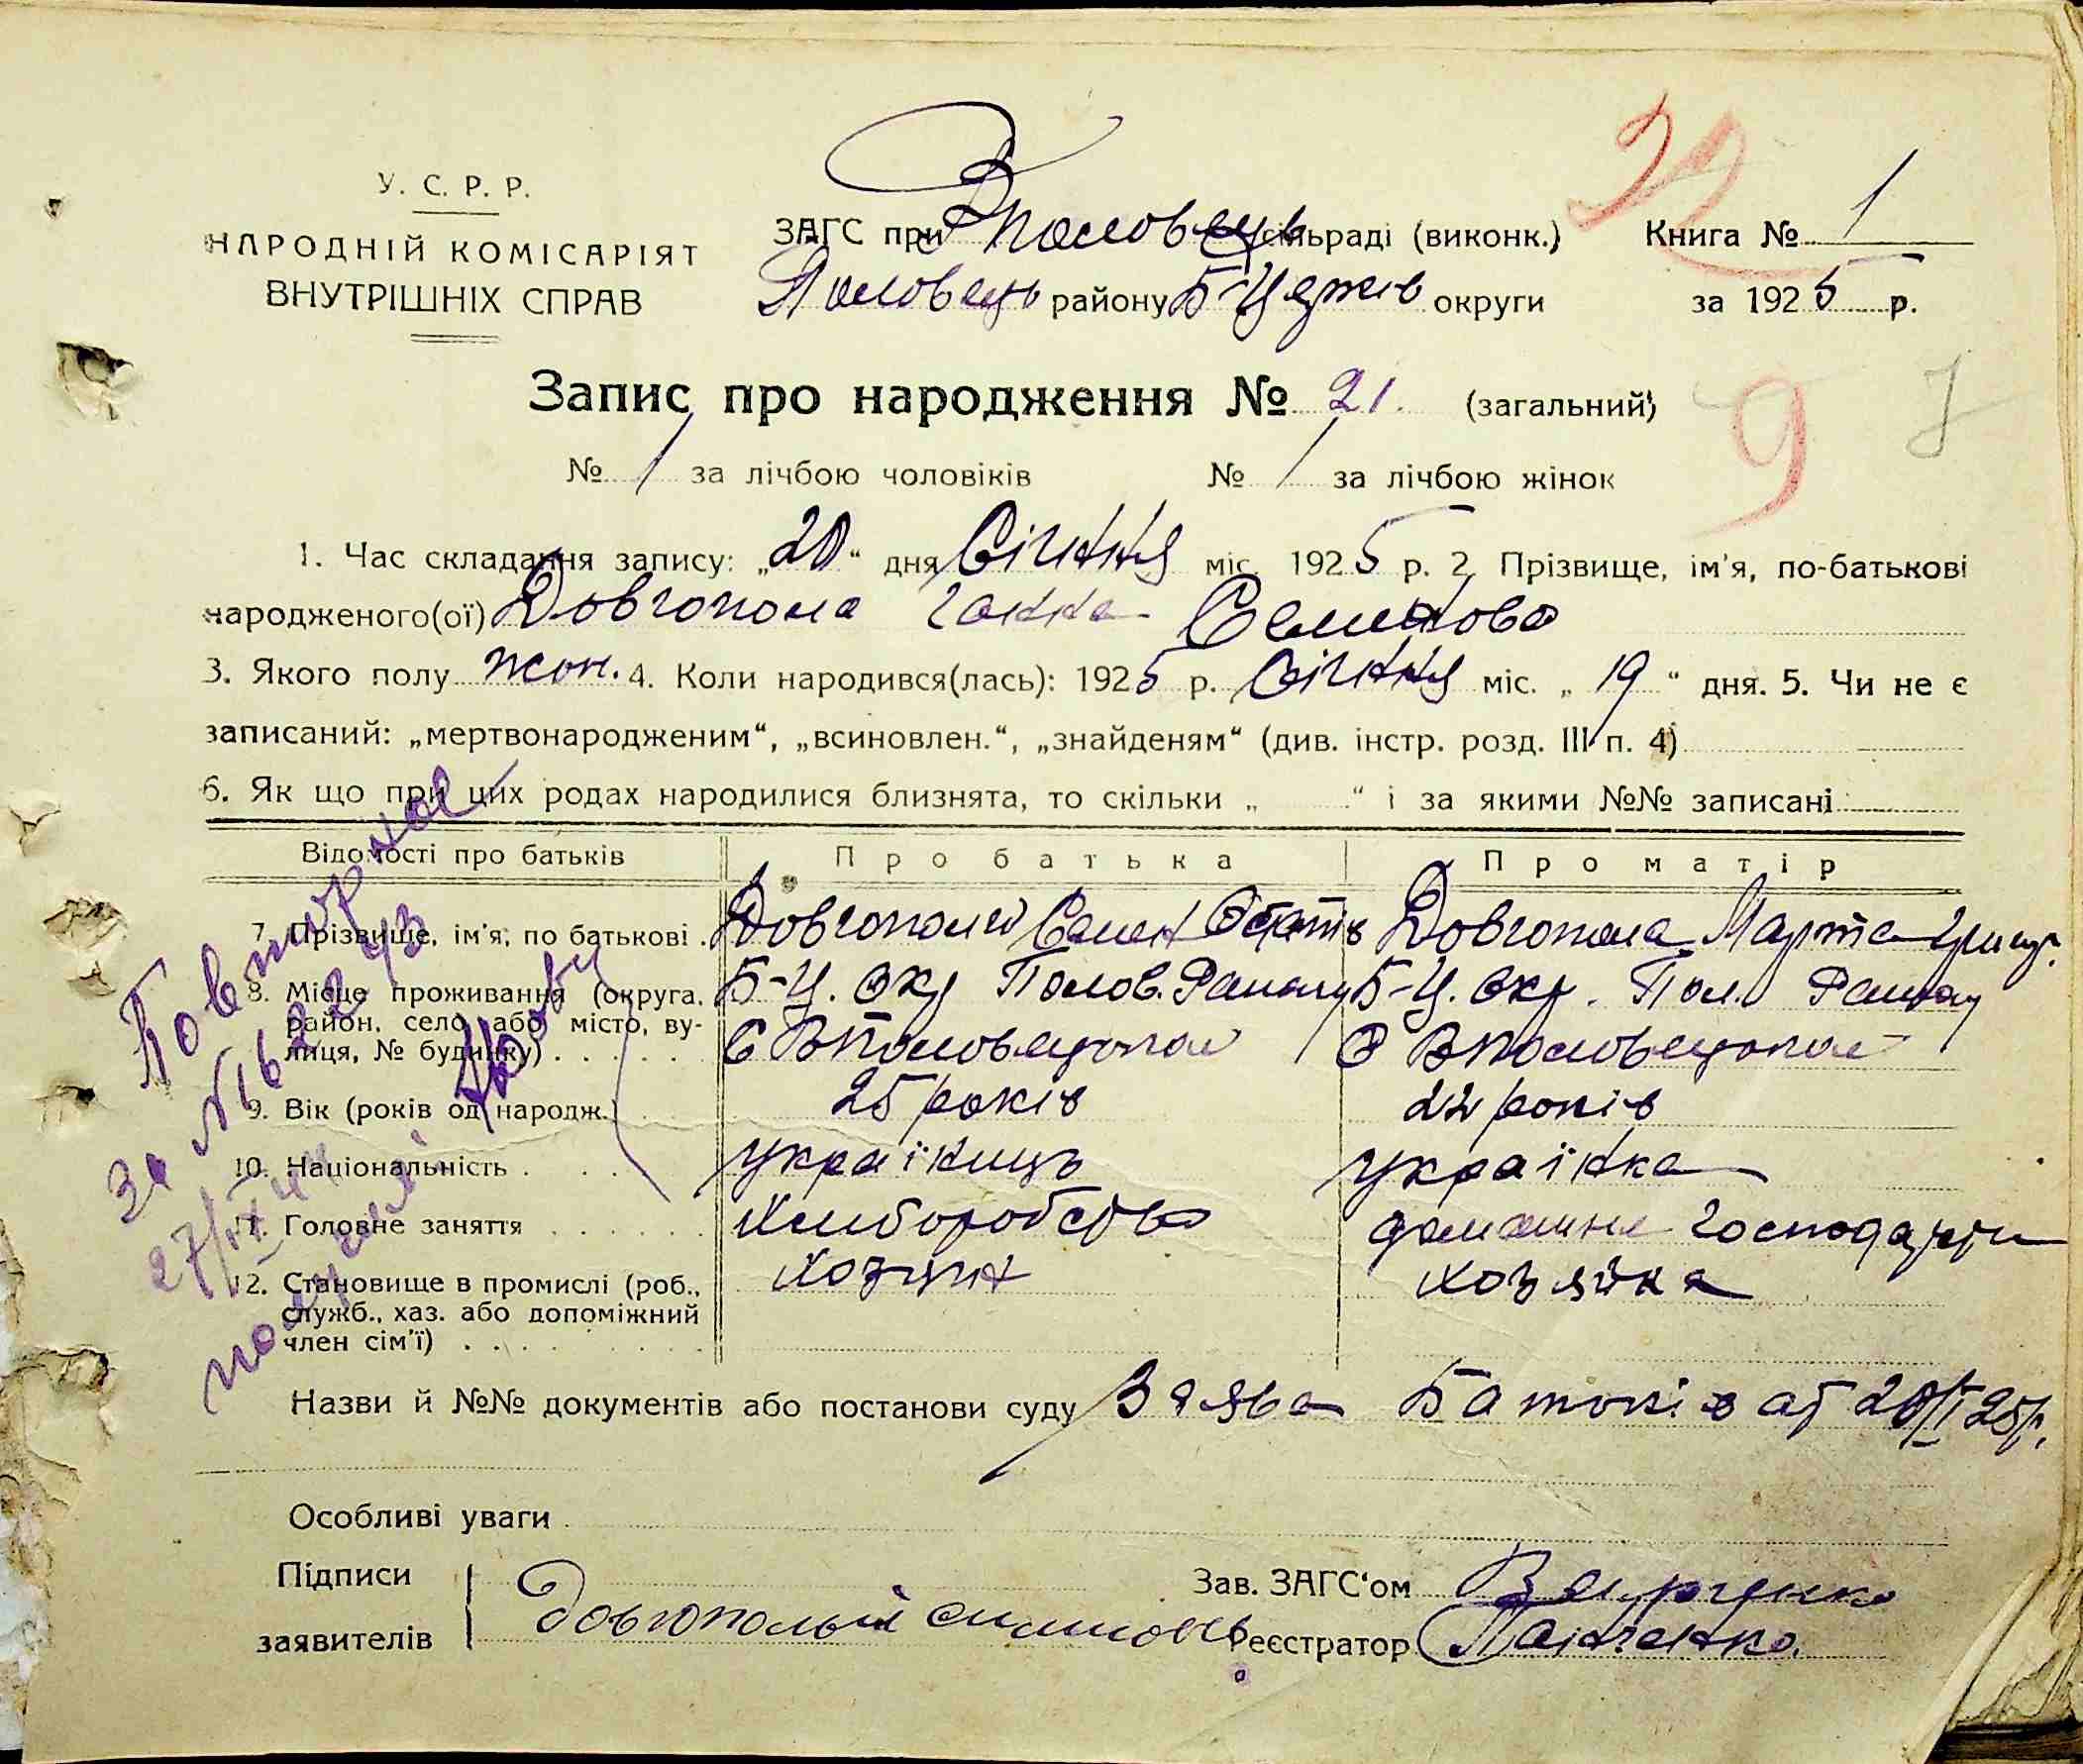 У. С. Р. Р.
НАРОДНІЙ КОМІСАРІЯТ
ВНУТРІШНІХ СПРАВ
ЗАГС при Вполовець сільраді (виконк.)
Половець району Б-Церків округи
Книга № 1
за 1925 р.
22
Запис про народження № 21. (загальний)
9
№ 1 за лічбою чоловіків № 1 за лічбою жінок
1. Час складання запису: „20“ дня Січння міс. 1925 р. 2. Прізвище, ім'я, по-батькові
народженого(ої) Довгопола Ганна Семенова
3. Якого полу жон. 4. Коли народився(лась): 1925 р. Січння міс. „19“ дня. 5. Чи не є
записаний: „мертвонародженим“, „всиновлен.“, „знайденям“ (див. інстр. розд. III п. 4)
6. Як що при цих родах народилися близнята, то скільки „ “ і за якими №№ записані
Відомості про батьків Про батька Про матір
7. Прізвище, ім'я, по батькові Довгополий Семен Остапів Довгопола Марта Григ.
8. Місце проживання (округа, Б-Ц. Окр Полов. Району Б-Ц. Окр. Пол. Району
район, село або місто, ву-
лиця, № будинку) С Вполовецьком С Вполовецьком
9. Вік (років од народж.) 25 років 22 років
10. Національність українець українка
11. Головне заняття Хліборобство домашне господарст
12. Становище в промислі (роб., хозяін хозяйка
служб., хаз. або допоміжний
член сім'ї)
Повторное
за №
27/IX
получил
Назви й №№ документів або постанови суду Заява Батьків від 20/I 25р.
Особливі уваги
Підписи
заявителів Довгополый
Зав. ЗАГС'ом
Реєстратор Панченко.